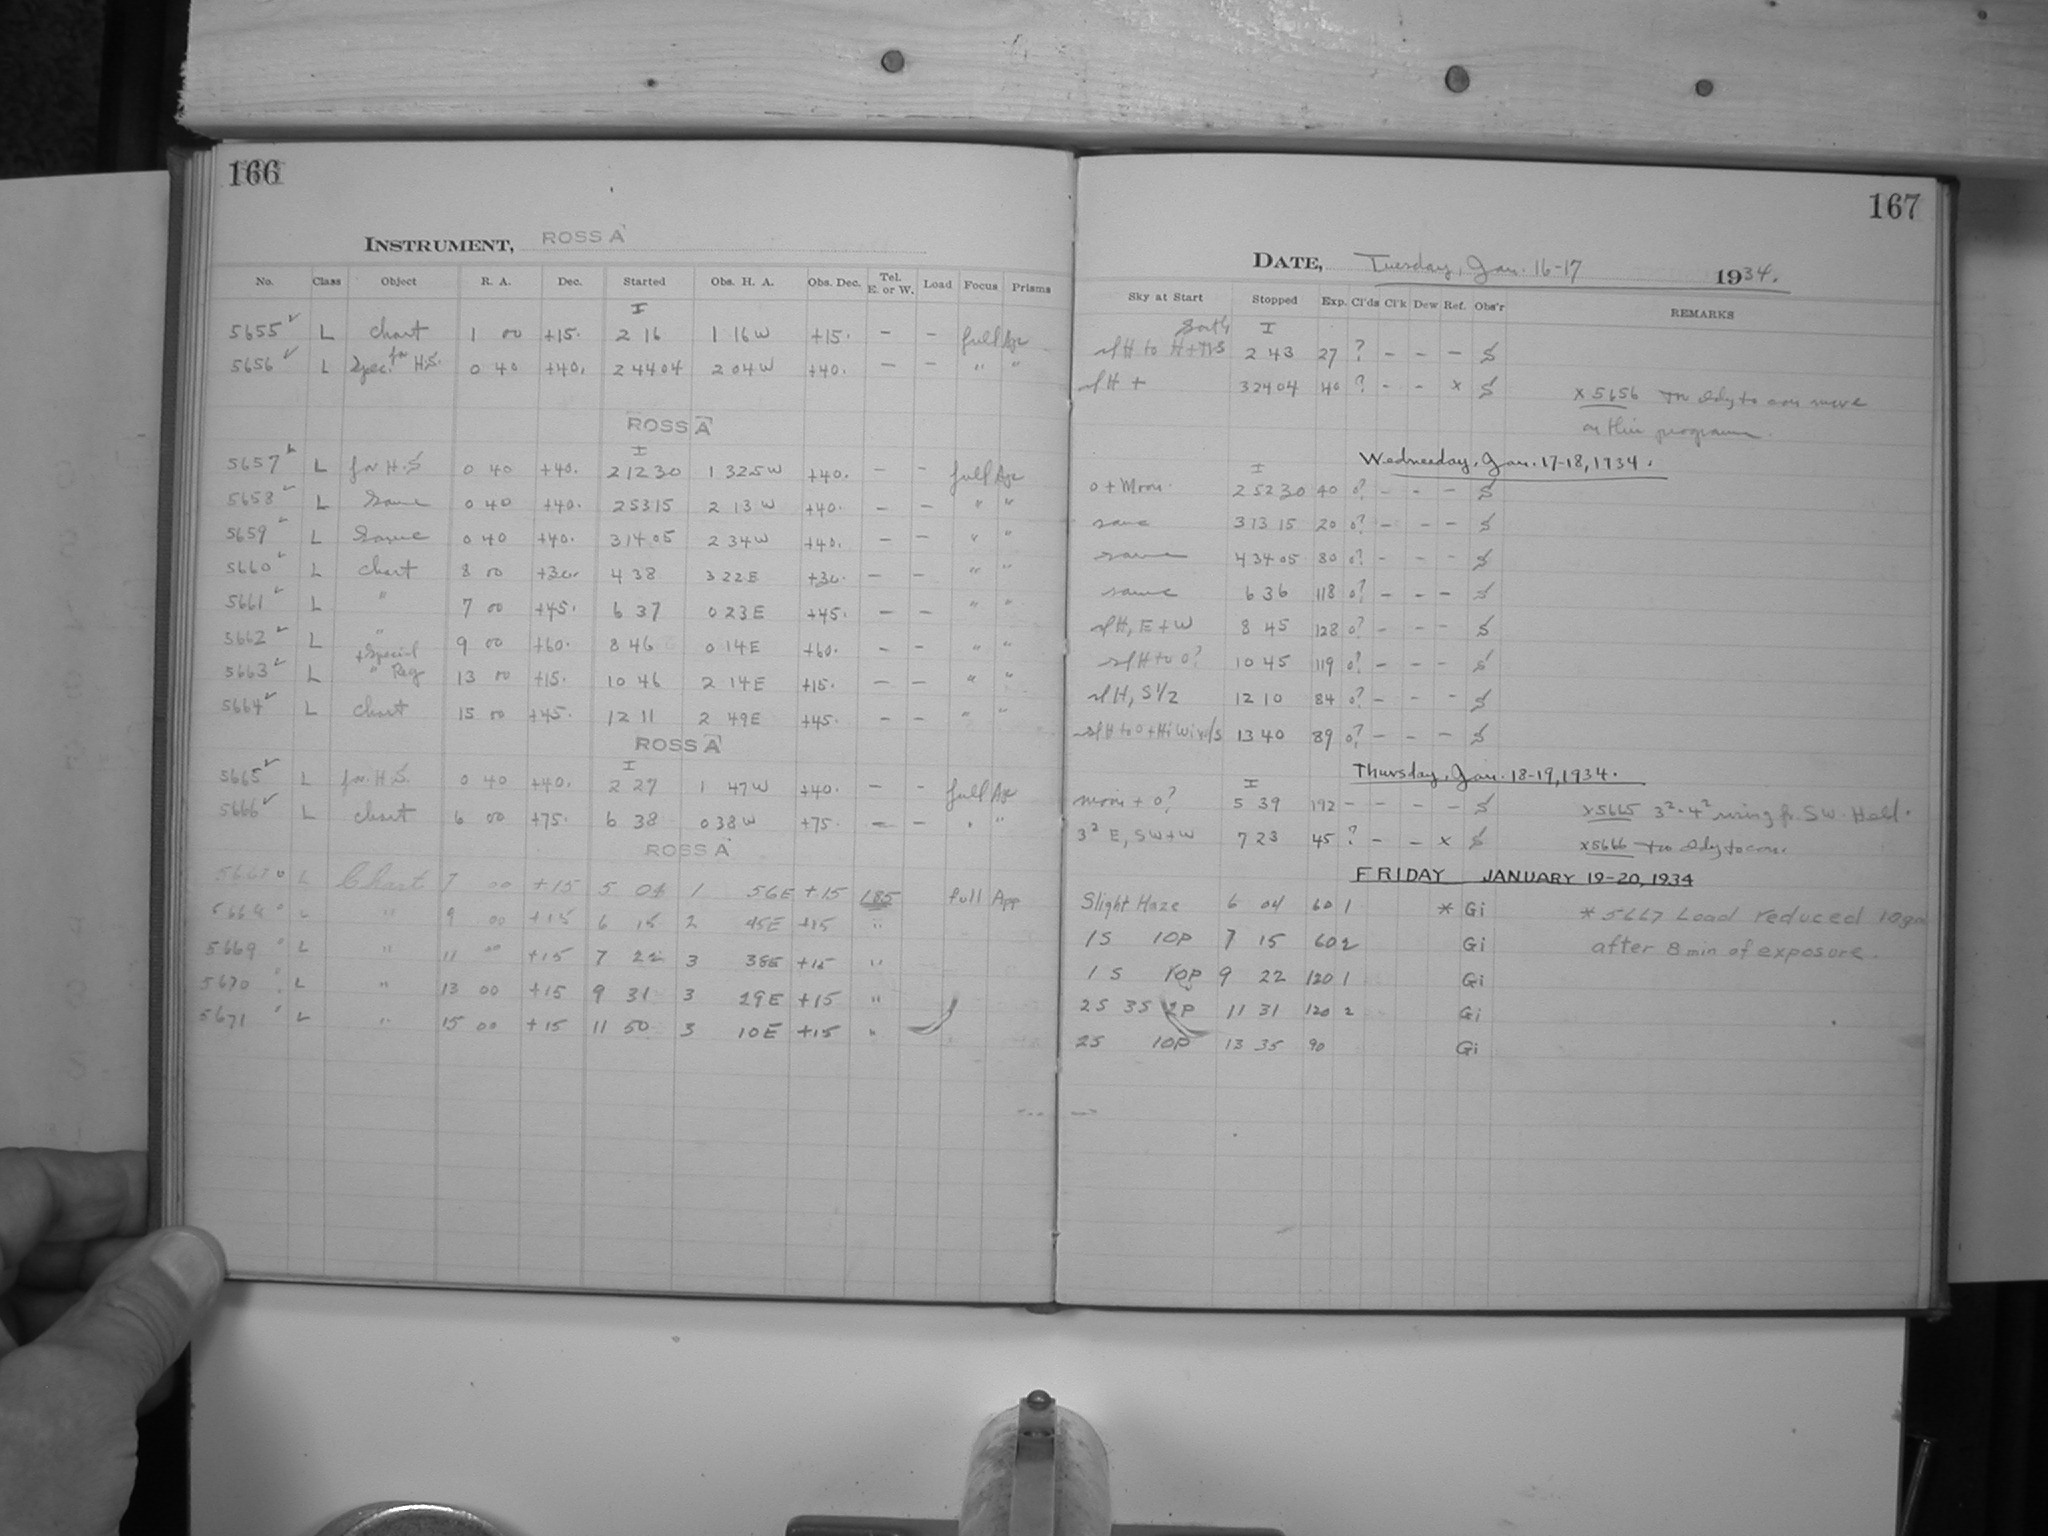 166
INSTRUMENT, ROSS A
No. Class Object R. A. Dec. Started Obs. H. A. Obs. Dec. Tel. E. or W. Load Focus Prisms
I
5655 L chart 1 00 +15. 2 16 1 16 W +15. - - full Ape
5656 L Spec. for H.S. 0 40 +40. 2 44 04 2 04 W +40. - - " "
ROSS A
I
5657 L for H.S 0 40 +40. 2 12 30 1 32 5 W +40. - - full Ape
5658 L Same 0 40 +40. 2 53 15 2 13 W +40. - - " "
5659 L Same 0 40 +40. 3 14 05 2 34 W +40. - - " "
5660 L chart 8 00 +30. 4 38 3 22 E +30. - - " "
5661 L " 7 00 +45. 6 37 0 23 E +45. - - " "
5662 L " 9 00 +60. 8 46 0 14 E +60. - - " "
5663 L + Special " Reg 13 00 +15. 10 46 2 14 E +15. - - " "
5664 L chart 15 00 +45. 12 11 2 49 E +45. - - " "
ROSS A
I
5665 L for H.S. 0 40 +40. 2 27 1 47 W +40. - - full Ape
5666 L chart 6 00 +75. 6 38 0 38 W +75. - - " "
ROSS A
5667 L Chart 7 00 +15 5 04 1 56 E +15 185 full App
5668 L " 9 00 +15 6 15 2 45 E +15 "
5669 L " 11 00 +15 7 22 3 38 E +15 "
5670 L " 13 00 +15 9 31 3 29 E +15 "
5671 L " 15 00 +15 11 50 3 10 E +15 "
167
DATE, Tuesday, Jan. 16-17 1934.
Sky at Start Stopped Exp. Cl'ds Cl'k Dew Ref. Obs'r REMARKS
I
sl H to H 2 43 27 ? - - - S
sl H + 3 24 04 40 ? - - x S x 5656 Too cldy to
on this programme.
Wednesday, Jan. 17-18, 1934.
I
0 + Moon. 2 52 30 40 0? - - - S
same 3 13 15 20 0? - - - S
same 4 34 05 80 0? - - - S
same 6 36 118 0? - - - S
sl H, E + W 8 45 128 0? - - - S
sl H to 0? 10 45 119 0? - - - S
sl H, S 1/2 12 10 84 0? - - - S
sl H to 0 + Hi Winds 13 40 89 0? - - - S
Thursday, Jan. 18-19, 1934.
I
moon + 0? 5 39 192 - - - - S x 5665 3²-4² rising fr. SW. Held.
3² E, SW + W 7 23 45 ? - - x S x 5666 too cldy to con.
FRIDAY JANUARY 19-20, 1934
Slight Haze 6 04 60 1 * Gi * 5667 Load reduced
1S 10P 7 15 60 2 Gi after 8 min of exposure.
1 S 10P 9 22 120 1 Gi
2S 3S 2P 11 31 120 2 Gi
2S 10P 13 35 90 Gi